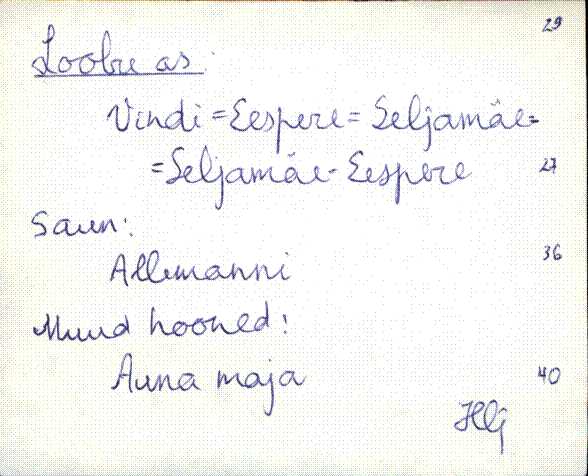 29
Loobu as.
Vindi = Eespere = Seljamäe =
= Seljamäe - Eespere 27
Saun:
Allemanni 36
Muud hooned:
Auna maja 40